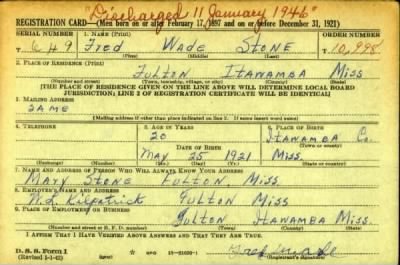 "Discharged 11 January 1946"
REGISTRATION CARD—(Men born on or after February 17, 1897 and on or before December 31, 1921)
SERIAL NUMBER 1. NAME (Print) ORDER NUMBER
T 649 Fred Wade Stone T10,998
(First) (Middle) (Last)
2. PLACE OF RESIDENCE (Print)
Fulton Itawamba Miss
(Number and street) (Town, township, village, or city) (County) (State)
[THE PLACE OF RESIDENCE GIVEN ON THE LINE ABOVE WILL DETERMINE LOCAL BOARD
JURISDICTION; LINE 2 OF REGISTRATION CERTIFICATE WILL BE IDENTICAL]
3. MAILING ADDRESS
Same
[Mailing address if other than place indicated on line 2. If same insert word same]
4. TELEPHONE 5. AGE IN YEARS 6. PLACE OF BIRTH
20 Itawamba Co.
DATE OF BIRTH (Town or county)
May 25 1921 Miss.
(Exchange) (Number) (Mo.) (Day) (Yr.) (State or country)
7. NAME AND ADDRESS OF PERSON WHO WILL ALWAYS KNOW YOUR ADDRESS
Mary Stone Fulton, Miss.
8. EMPLOYER'S NAME AND ADDRESS
Kilpatrick Fulton Miss
9. PLACE OF EMPLOYMENT OR BUSINESS
Fulton Itawamba Miss
(Number and street or R. F. D. number) (Town) (County) (State)
I AFFIRM THAT I HAVE VERIFIED ABOVE ANSWERS AND THAT THEY ARE TRUE.
D. S. S. Form 1
(Revised 5-1-42) (over)